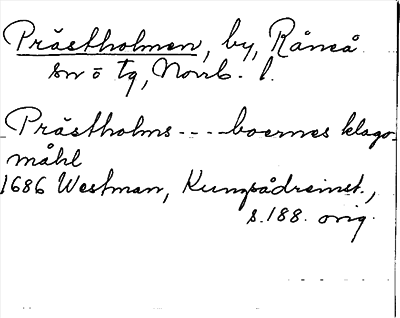 Prästholmen, by, Råneå
sn o tg, Norrb. l.
Prästholms - - - boernes klago-
måhl
1686 Westman, Kungsådreinst.,
s. 188. orig.